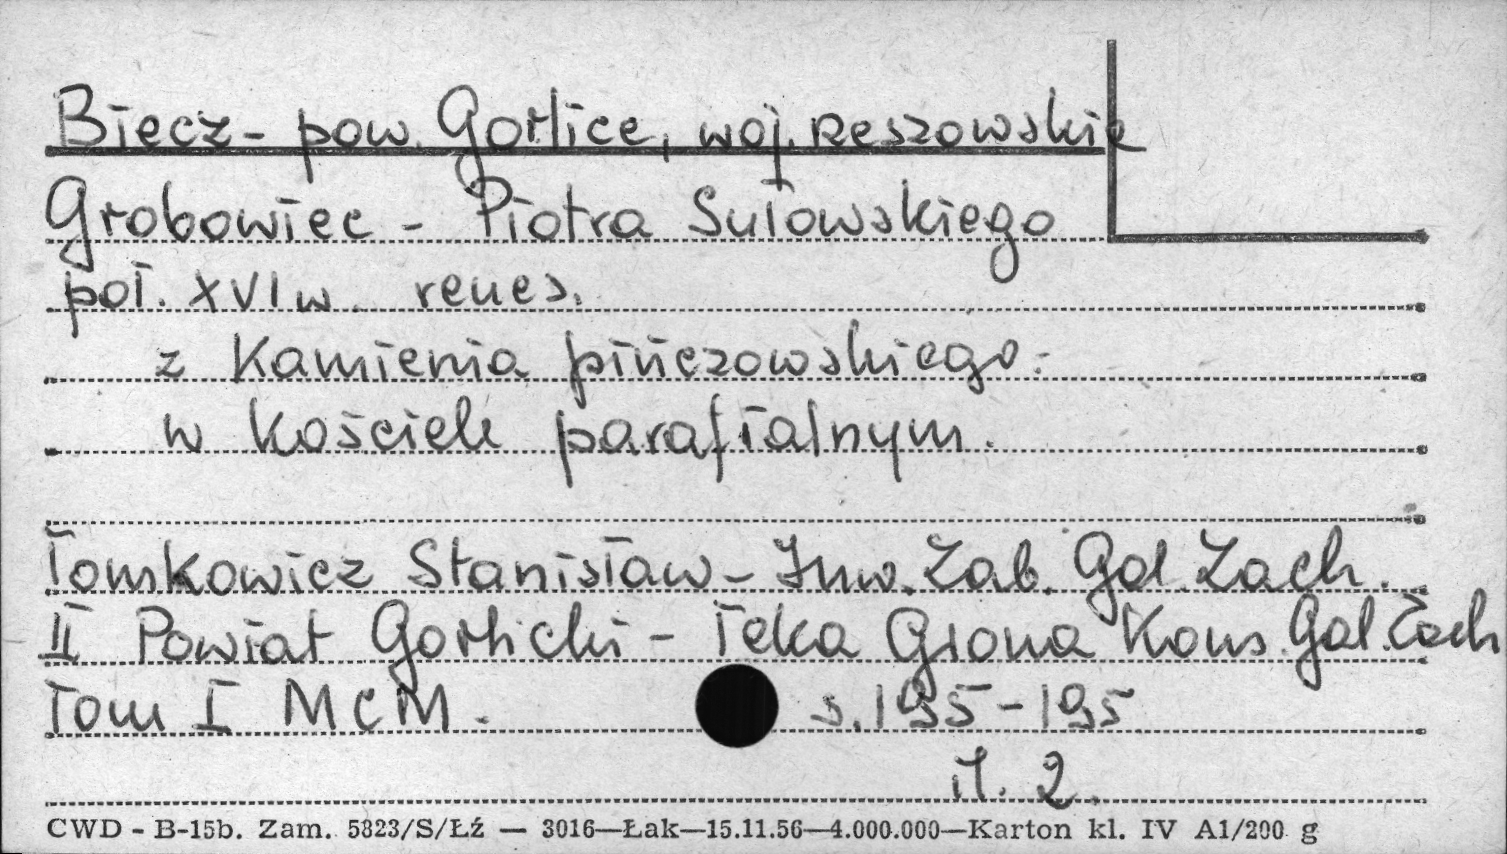 Biecz - pow. Gorlice, woj. Rzeszowskie
Grobowiec - Piotra Sułowskiego
poł. XVI w. renes.
z Kamienia pińczowskiego.
w kościele parafialnym.
Tomkowicz Stanisław - Inw. Zab. Gal. Zach.
II Powiat Gorlicki - Teka Grona Kons. Gal. Zach
Tom I MCM. s. 195-195
il. 2.
CWD - B-15b. Zam. 5823/S/Łź — 3016—Łak—15.11.56—4.000.000—Karton kl. IV A1/200 g